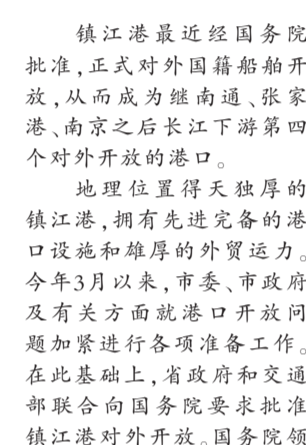 镇江港最近经国务院
批准,正式对外国籍船舶开
放,从而成为继南通、张家
港、南京之后长江下游第四
个对外开放的港口。
地理位置得天独厚的
镇江港,拥有先进完备的港
口设施和雄厚的外贸运力。
今年3月以来,市委、市政府
及有关方面就港口开放问
题加紧进行各项准备工作。
在此基础上,省政府和交通
部联合向国务院要求批准
镇江港对外开放。国务院领